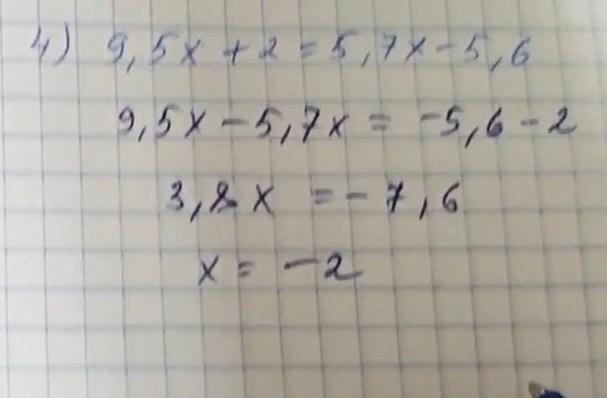 4) 9,5x + 2 = 5,7x - 5,6
9,5x - 5,7x = -5,6 - 2
3,8x = -7,6
x = -2